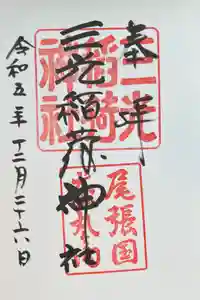 奉拝
三光稲荷神社
令和五年十二月二十六日
三光
稲荷
神社
尾張国
犬山